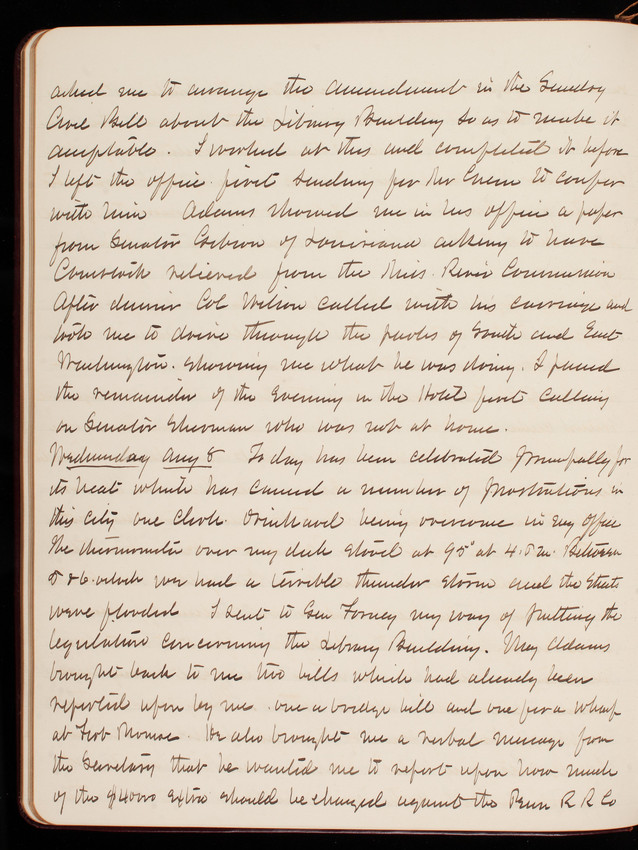 asked me to arrange the amendment in the Sundry
Civil Bill about the Library Building so as to make it
acceptable. I worked at this and completed it before
I left the office first sending for Mr Green to confer
with him Adams showed me in his office a paper
from Senator Gibson of Louisiana asking to have
Comstock relieved from the Miss. River Commission
After dinner Col Wilson called with his carriage and
took me to drive through the parks of South and East
Washington. showing me what he was doing. I passed
the remainder of the evening in the Hotel first calling
on Senator Sherman who was not at home.
Wednesday Aug 8 Today has been celebrated principally for
its heat which has caused a number of prostrations in
this city one clerk Drinkard being overcome in Eng Office
The thermometer over my desk stood at 95° at 4. P.M. Between
5 & 6 oclock we had a terrible thunder storm and the streets
were flooded I sent to Gen Forney my way of putting the
legislation concerning the Library Building. Maj Adams
brought back to me two bills which had already been
reported upon by me. one a bridge bill and one for a wharf
at Fort Monroe. He also brought me a verbal message from
the Secretary that he wanted me to report upon how much
of the $4000 extra should be charged against the Penn R R Co